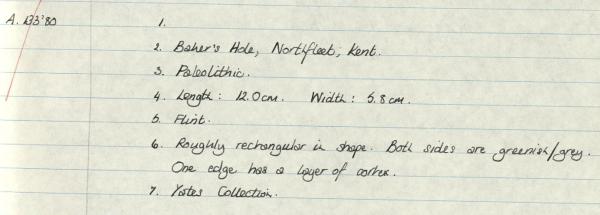 A. 133'80
1.
2. Baker's Hole, Northfleet, Kent.
3. Paleolithic.
4. Length: 12.0cm. Width: 5.8cm.
5. Flint.
6. Roughly rectangular in shape. Both sides are greenish/grey.
One edge has a layer of cortex.
7. Yates Collection.